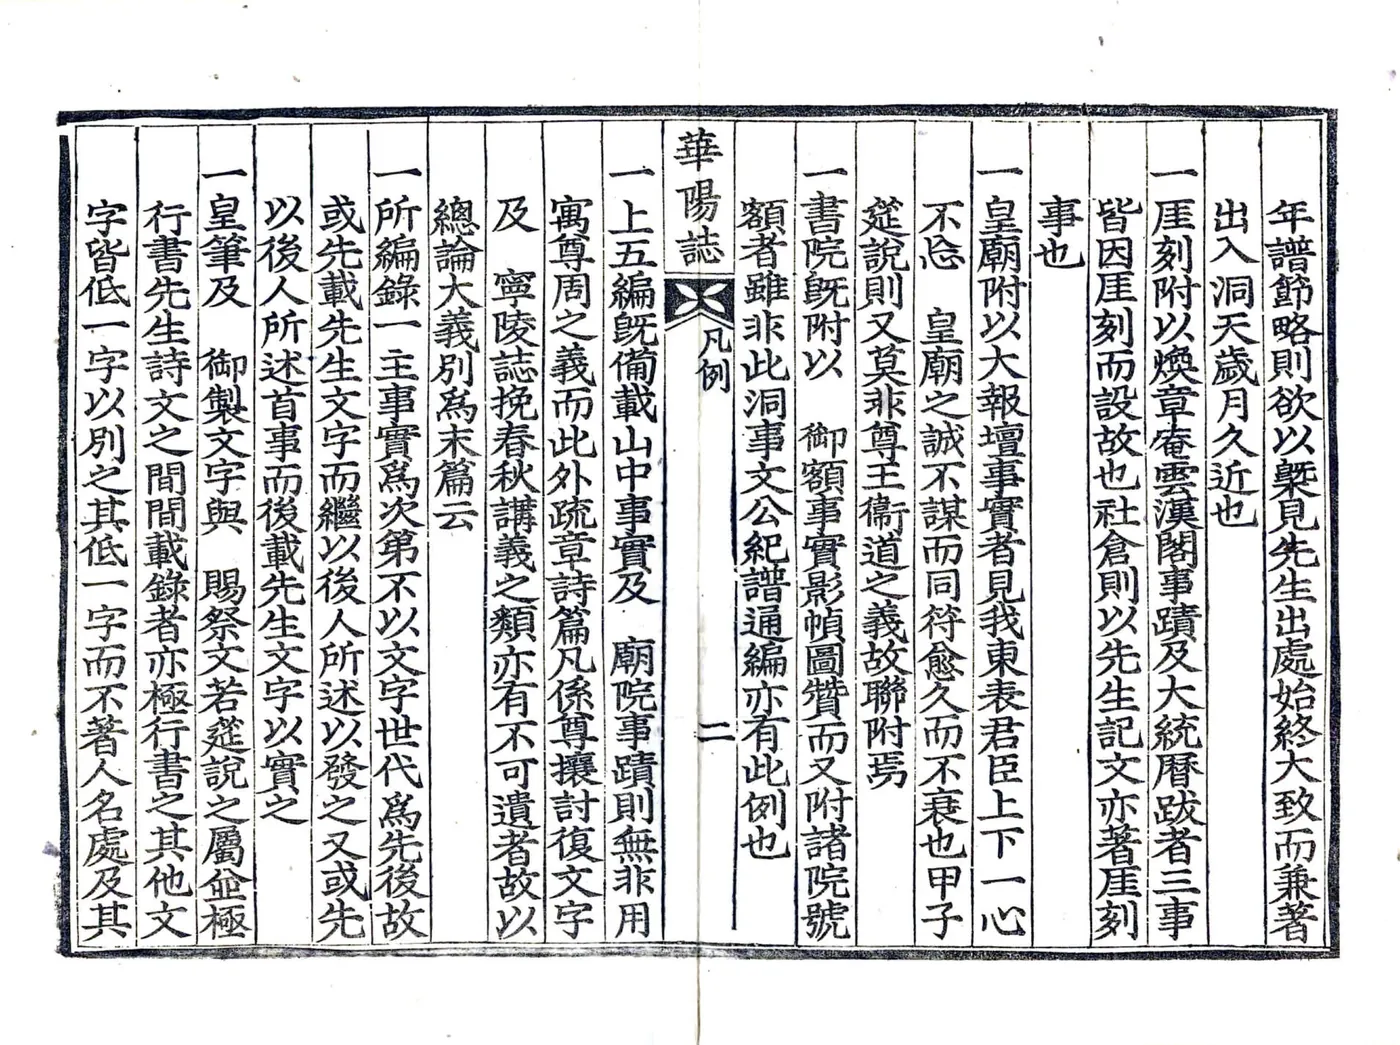 年譜節略則欲以槩見先生出處始終大致而兼著
出入洞天歲月久近也
一厓刻附以煥章庵雲漢閣事蹟及大統曆跋者三事
皆因厓刻而設故也社倉則以先生記文亦著厓刻
事也
一皇廟附以大報壇事實者見我東表君臣上下一心
不忘　皇廟之誠不謀而同符愈久而不衰也甲子
筵說則又莫非尊王衛道之義故聯附焉
一書院旣附以　御額事實影幀圖贊而又附諸院號
額者雖非此洞事文公紀譜通編亦有此例也
華陽誌　凡例　二
一上五編旣備載山中事實及　廟院事蹟則無非用
寓尊周之義而此外疏章詩篇凡係尊攘討復文字
及　寧陵誌挽春秋講義之類亦有不可遺者故以
總論大義別爲末篇云
一所編錄一主事實爲次第不以文字世代爲先後故
或先載先生文字而繼以後人所述以發之又或先
以後人所述首事而後載先生文字以實之
一皇筆及　御製文字與　賜祭文若筵說之屬並極
行書先生詩文之間間載錄者亦極行書之其他文
字皆低一字以別之其低一字而不著人名處及其